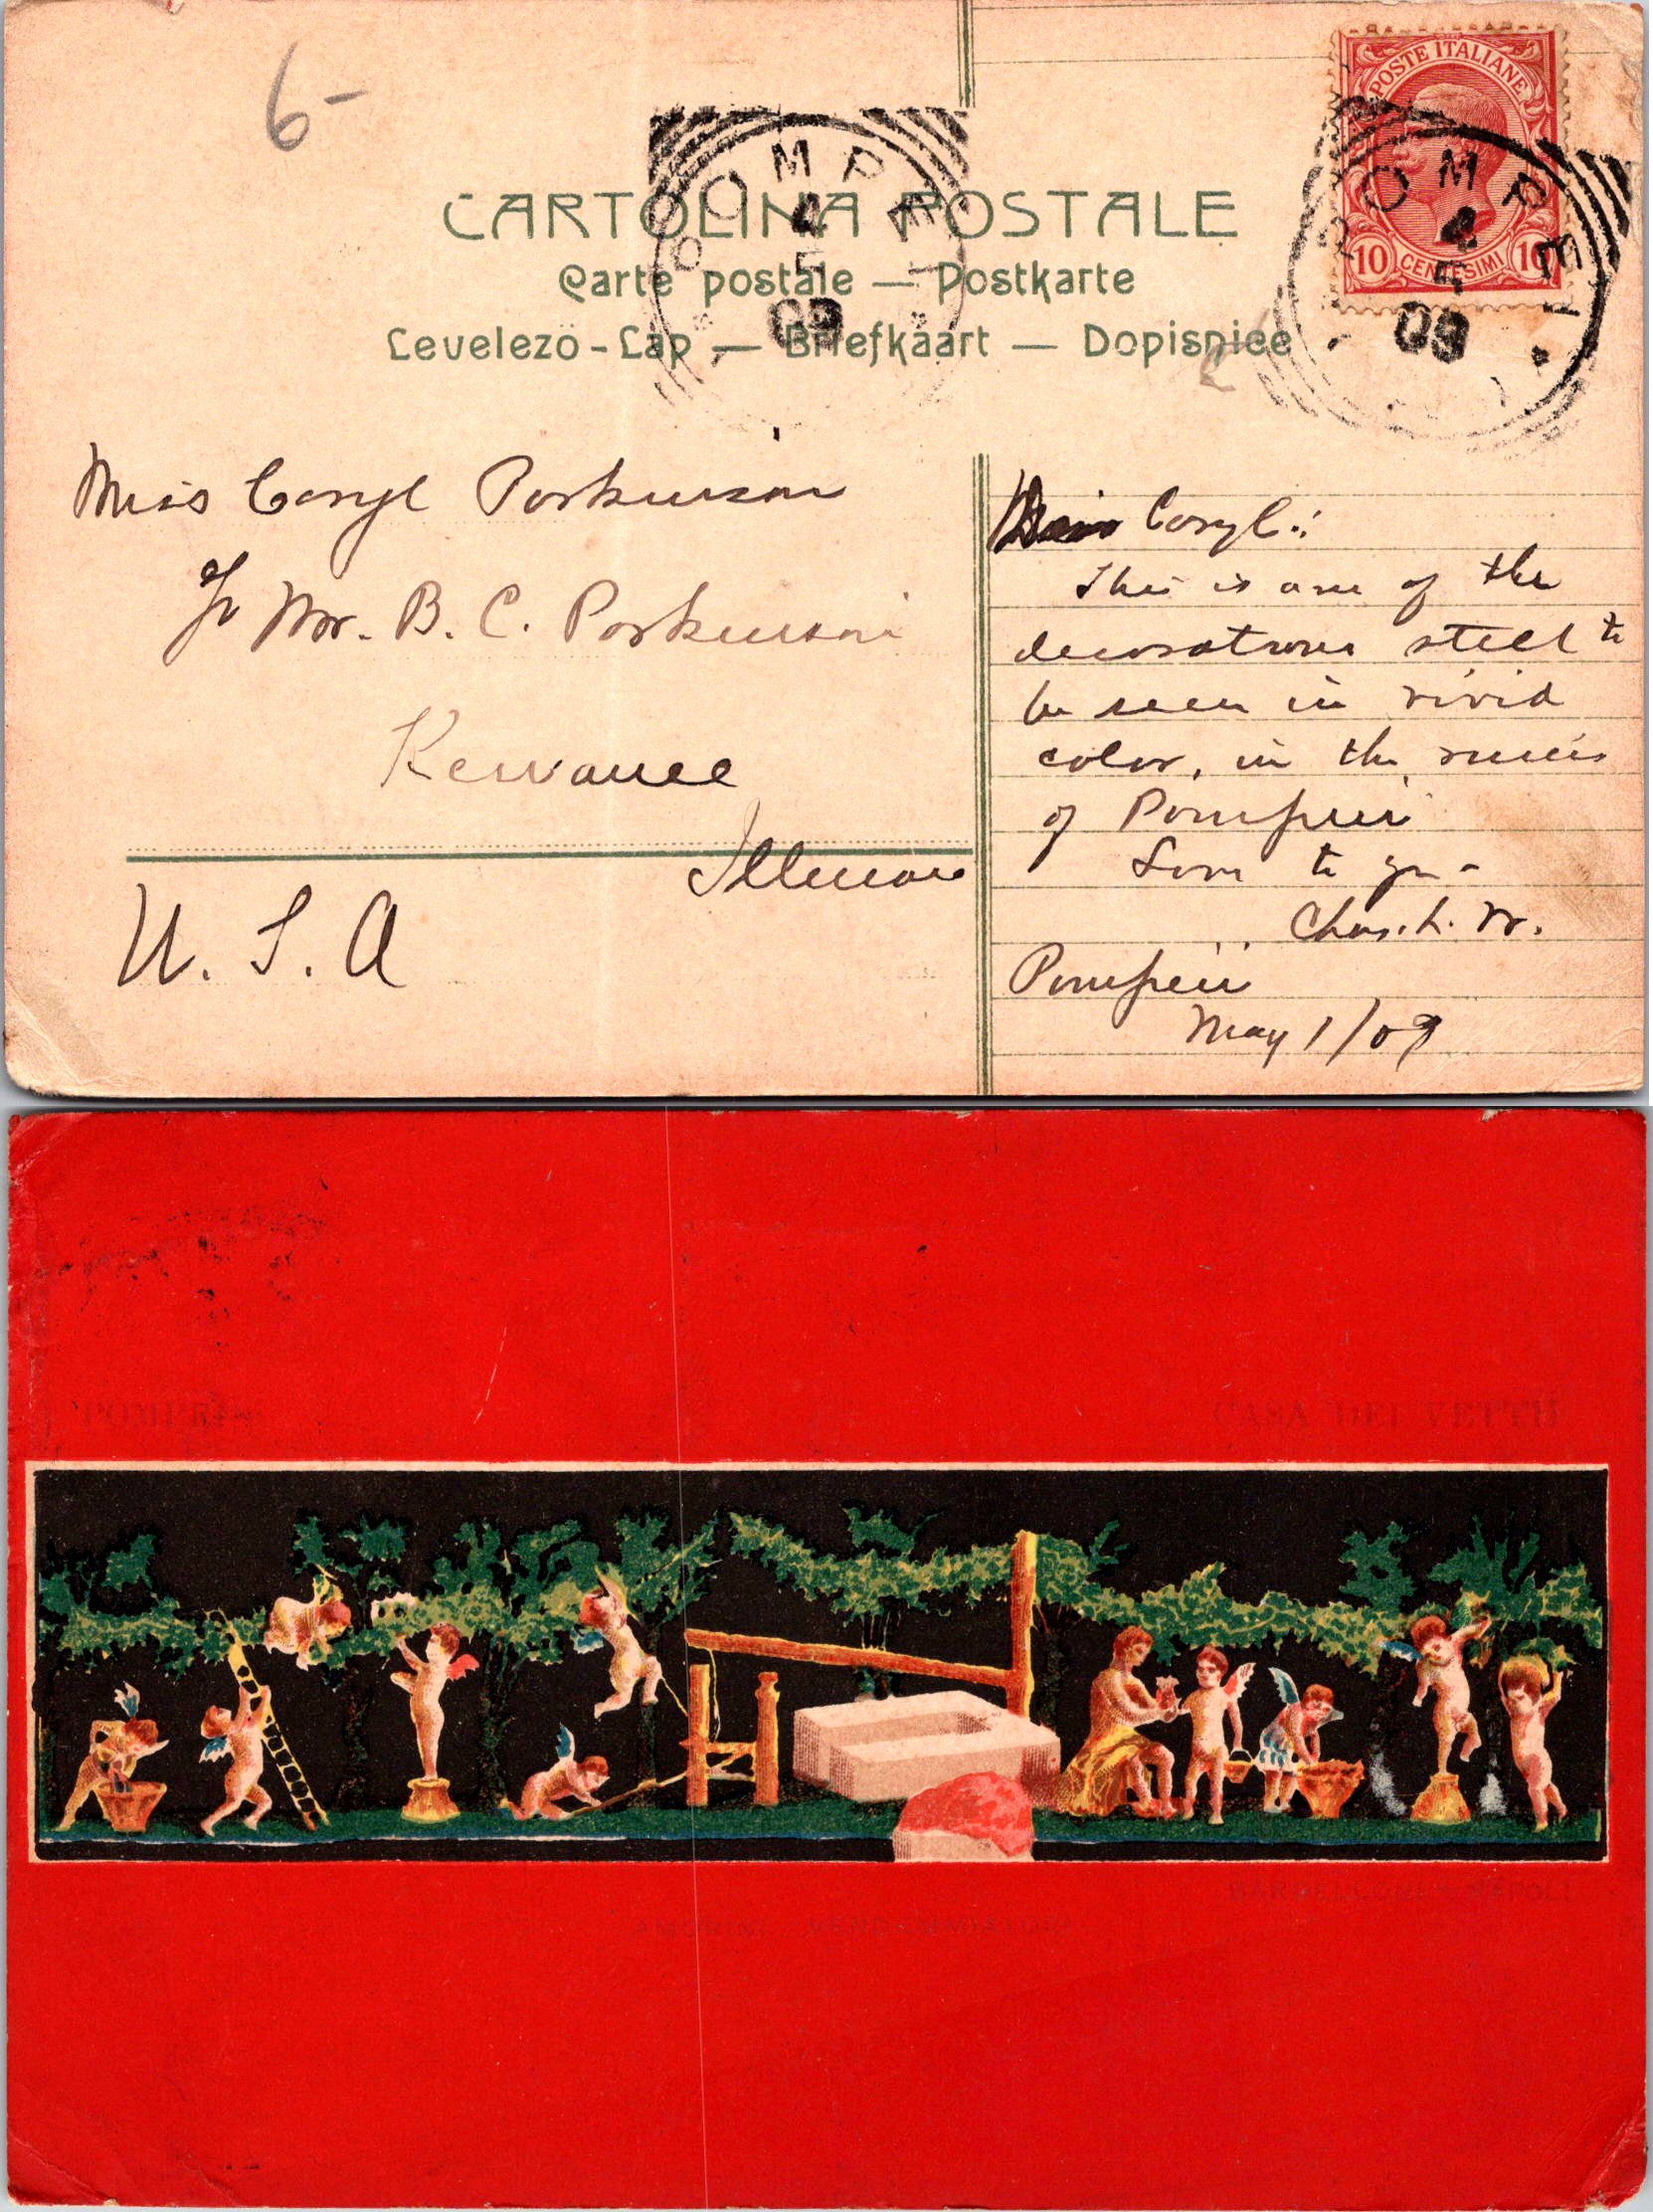 6-
POSTE ITALIANE
10 CENTESIMI 10
POMPEI
4
5
09
POMPEI
4
5
09
CARTOLINA POSTALE
Carte postale — Postkarte
Levelezö-Láp — Briefkaart — Dopisnice
Miss Caryl Parkinson
c/o Mr. B. C. Parkinson
Kewanee
Illinois
U. S. A
Caryl:
This is one of the
decorations still to
be seen in vivid
color, in the ruins
of Pompeii
Love to you -
Chas. L. W.
Pompeii
May 1/09
POMPEI
CASA DEI VETTII
NAPOLI